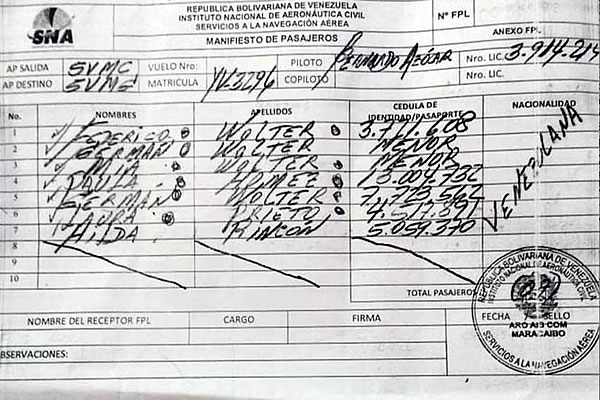 SNA
REPÚBLICA BOLIVARIANA DE VENEZUELA
INSTITUTO NACIONAL DE AERONÁUTICA CIVIL
SERVICIOS A LA NAVEGACIÓN AÉREA
MANIFIESTO DE PASAJEROS
N° FPL
ANEXO FPL
AP SALIDA SVMC VUELO Nro: PILOTO Nro. LIC. 3.914.214
AP DESTINO SVMG MATRICULA YV3296 COPILOTO Nro. LIC.
No. NOMBRES APELLIDOS CEDULA DE IDENTIDAD/PASAPORTE NACIONALIDAD
1 FEDERICO WOLTER 3.711.608
2 GERMAN WOLTER MENOR
3 WOLTER MENOR
4 PAULA 13.004.732
5 GERMAN WOLTER 7.773.562
6 LAURA PRIETO
7 HILDA RINCON 5.059.370
8
9
10
VENEZOLANA
TOTAL PASAJEROS
NOMBRE DEL RECEPTOR FPL CARGO FIRMA FECHA Y SELLO
OBSERVACIONES:
REPÚBLICA BOLIVARIANA DE VENEZUELA
INSTITUTO NACIONAL DE AERONÁUTICA CIVIL
ARO AIS COM
MARACAIBO
SERVICIOS A LA NAVEGACIÓN AÉREA